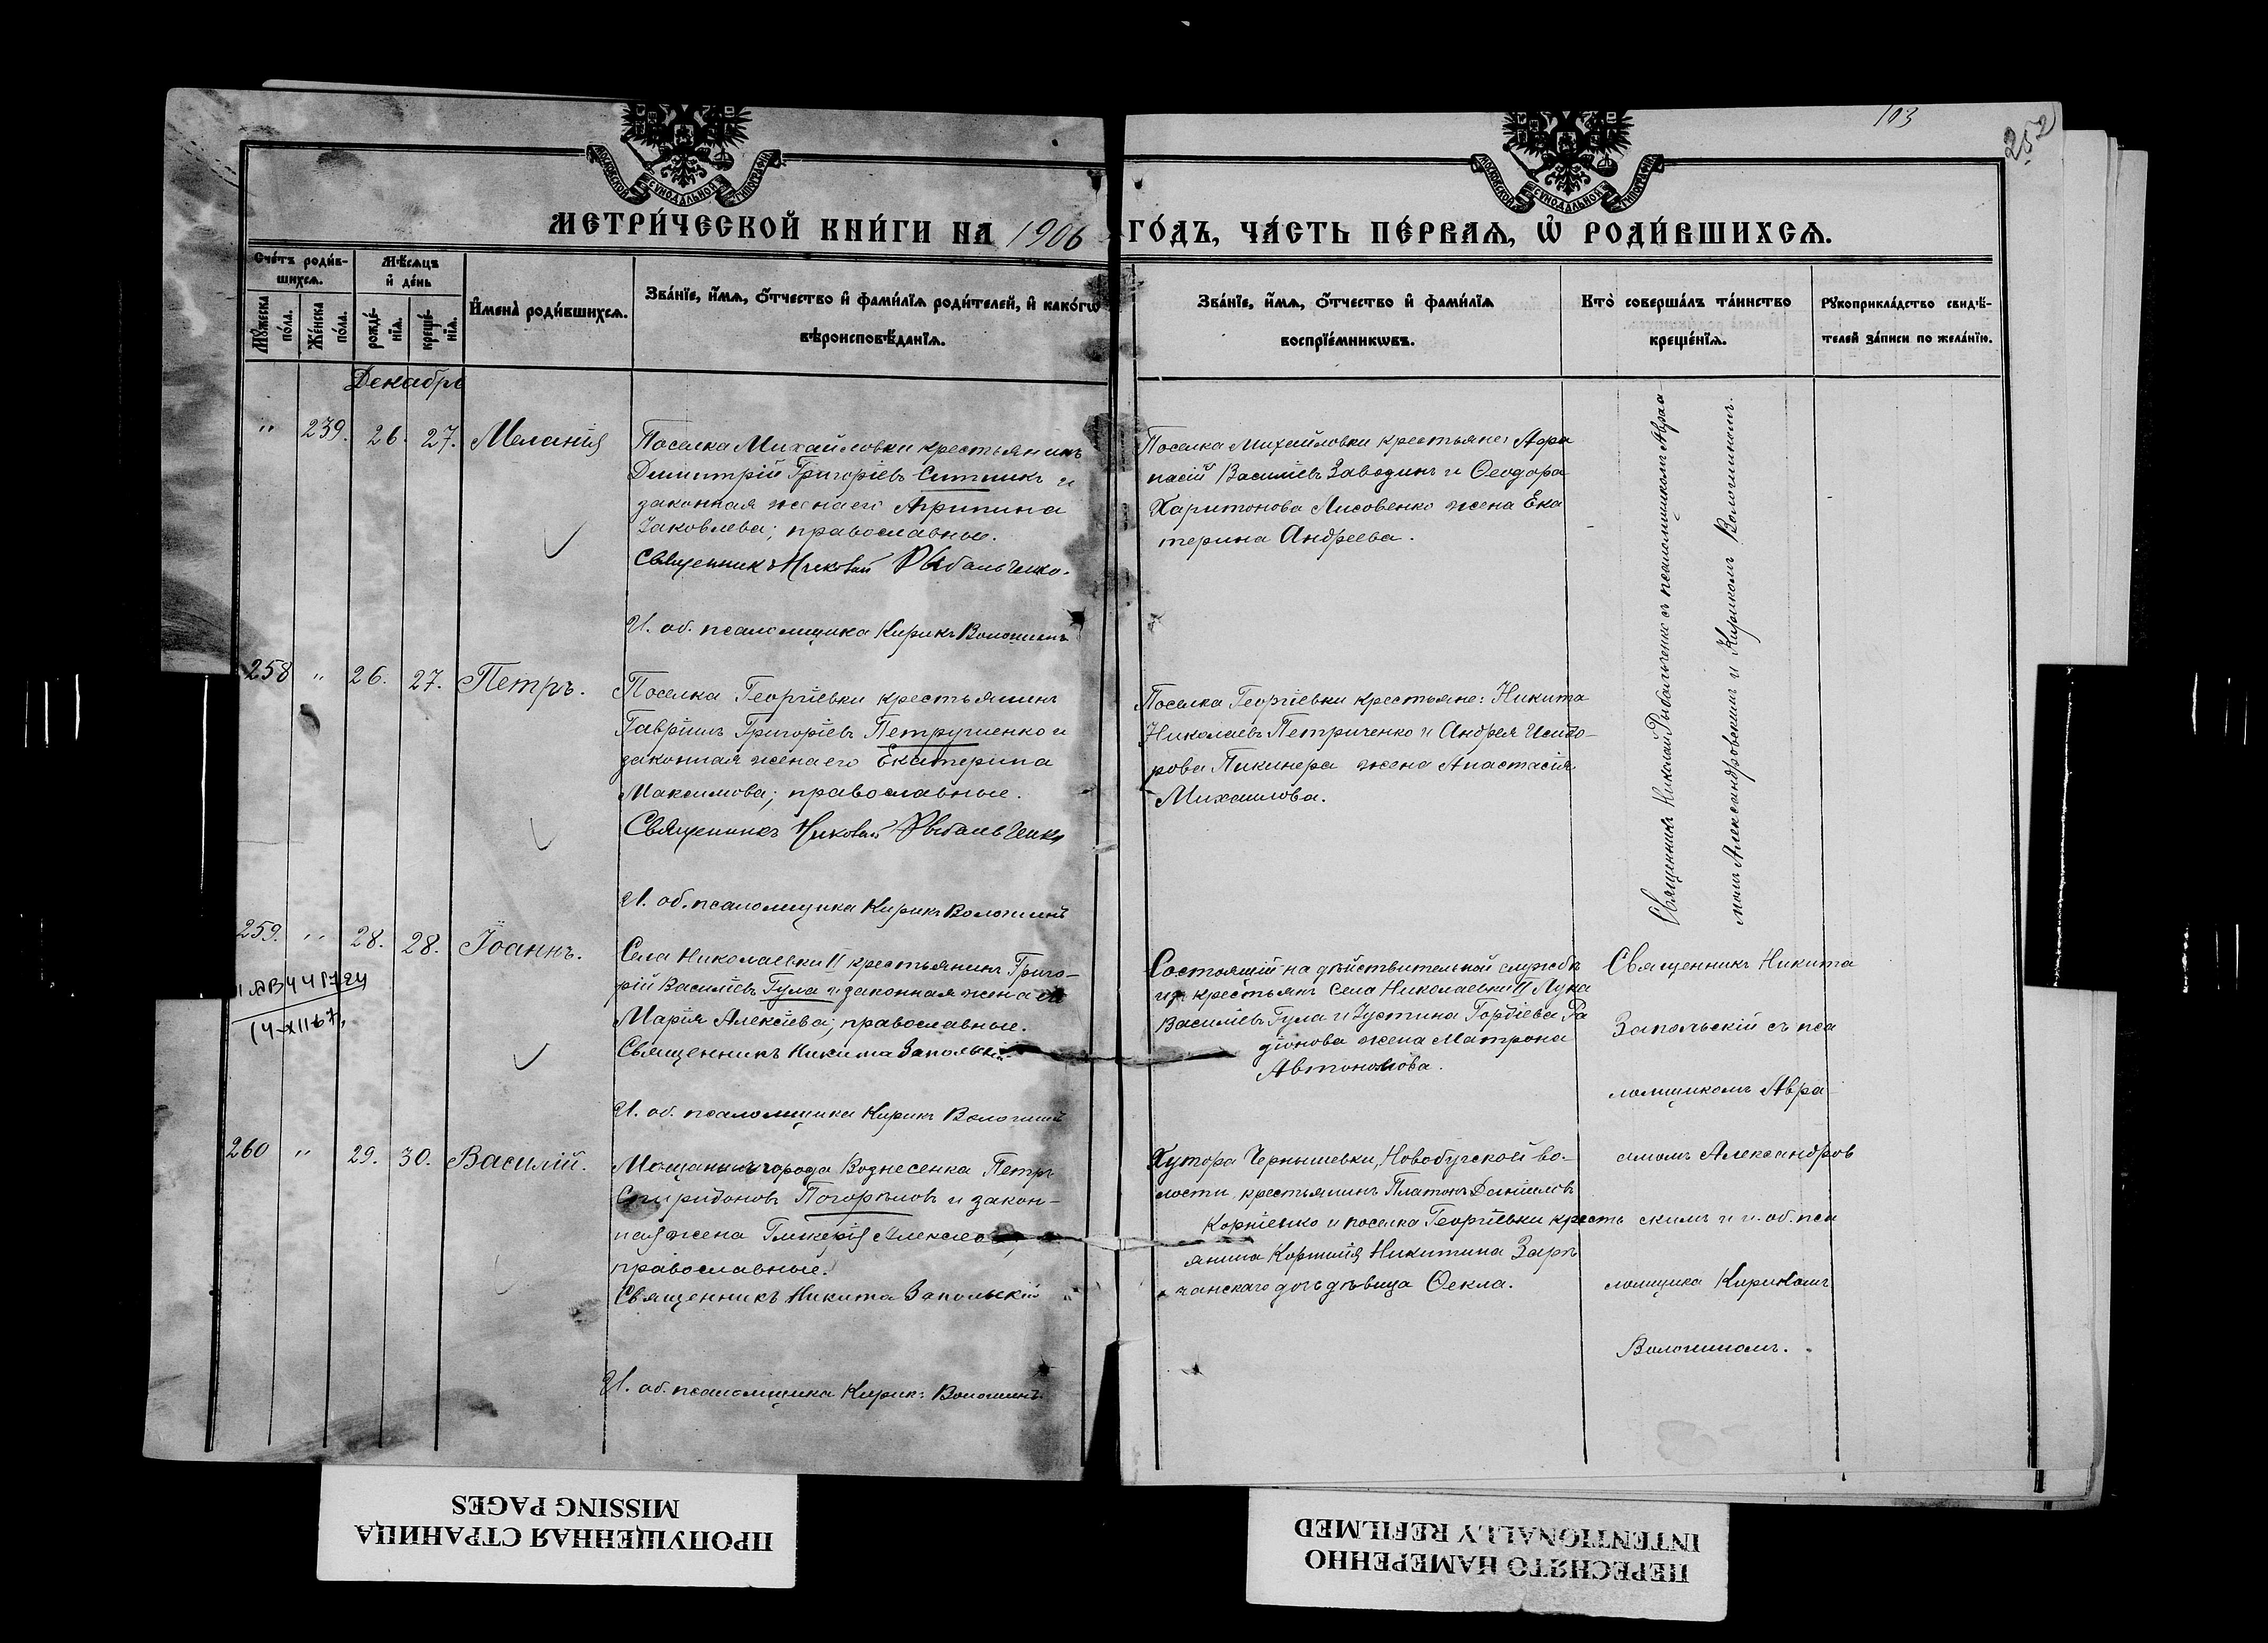 103
252
МОСКОВСКОЙ СУНОДАЛЬНОЙ ТИПОГРАФІИ
МОСКОВСКОЙ СУНОДАЛЬНОЙ ТИПОГРАФІИ
МЕТРИ́ЧЕСКОЙ КНИ́ГИ НА 1906 ГО́ДЪ, ЧА́СТЬ ПЕ́РВАѦ, Ѡ РОДИ́ВШИХСѦ.
Сче́тъ роди́в-
шихсѧ.
Мꙋ́жеска по́ла.
Же́нска по́ла.
Мѣ́сѧцъ
и҆ де́нь
рожде́-
нїѧ.
креще́-
нїѧ.
И҆мена̀ роди́вшихсѧ.
Зва́нїе, и҆́мѧ, ѻ҆́тчество и҆ фами́лїѧ роди́телей, и҆ како́гѡ
вѣроисповѣ́данїѧ.
Зва́нїе, и҆́мѧ, ѻ҆́тчество и҆ фами́лїѧ
воспрїе́мникѡвъ.
Кто̀ соверша́лъ та́инство
креще́нїѧ.
Рꙋкоприкла́дство свидѣ́-
телей за́писи по жела́нїю.
Декабрь
" 239. 26. 27. Меланія
Поселка Михайловки крестьянинъ
Димитрій Григоріевъ Ситникъ и
законная жена его Агрипина
Іаковлева; православные.
Священникъ Николай Рыбальченко.
И. об. псаломщика Кирикъ Волошинъ
Поселка Михайловки крестьяне: Афа
насій Василіевъ Заводинъ и Ѳеодора
Харитонова Лисовенко жена Ека
терина Андреева.
Священникъ Николай Рыбальченко съ псаломщикомъ Авраа
момъ Александровскимъ и Кирикомъ Волошиномъ.
258 " 26. 27. Петръ.
Поселка Георгіевки крестьянинъ
Гавріилъ Григоріевъ Петрученко и
законная жена его Екатерина
Максимова; православные.
Священникъ Николай Рыбальченко
И. об. псаломщика Кирикъ Волошинъ
Поселка Георгіевки крестьяне: Никита
Николаевъ Петриченко и Андрея Исидо-
рова Пикинера жена Анастасія
Михаилова.
259. " 28. 28. Іоаннъ.
Села Николаевки II крестьянинъ Григо-
рій Василіевъ Гула и законная жена его
Марія Алексіева; православные.
Священникъ Никита Запольскій
И. об. псаломщика Кирикъ Волошинъ
Состоящій на дѣйствительной службѣ
изъ крестьянъ села Николаевки II Лука
Василіевъ Гула и Іустина Гордіева Ра
діонова жена Матрона
Автономова.
Священникъ Никита
Запольскій съ пса
ломщикомъ Авра
амомъ Александров
скимъ и и. об. пса
ломщика Кирикомъ
Волошиномъ.
260 " 29. 30. Василій.
Мѣщанинъ города Вознесенка Петръ
Спиридоновъ Погорѣловъ и закон-
ная жена Гликерія
православные.
Священникъ Никита Запольскій
И. об. псаломщика Кирикъ Волошинъ.
Хутора Чернышевки, Новобугской во-
лости, крестьянинъ Платонъ Даніиловъ
Корніенко и поселка Георгіевки кресть
янина Корнилія Никитина Зарѣ
чанскаго дочь дѣвица Ѳекла.
ПРОПУЩЕННАЯ СТРАНИЦА
MISSING PAGES
ПЕРЕСНЯТО НАМЕРЕННО
INTENTIONALLY REFILMED